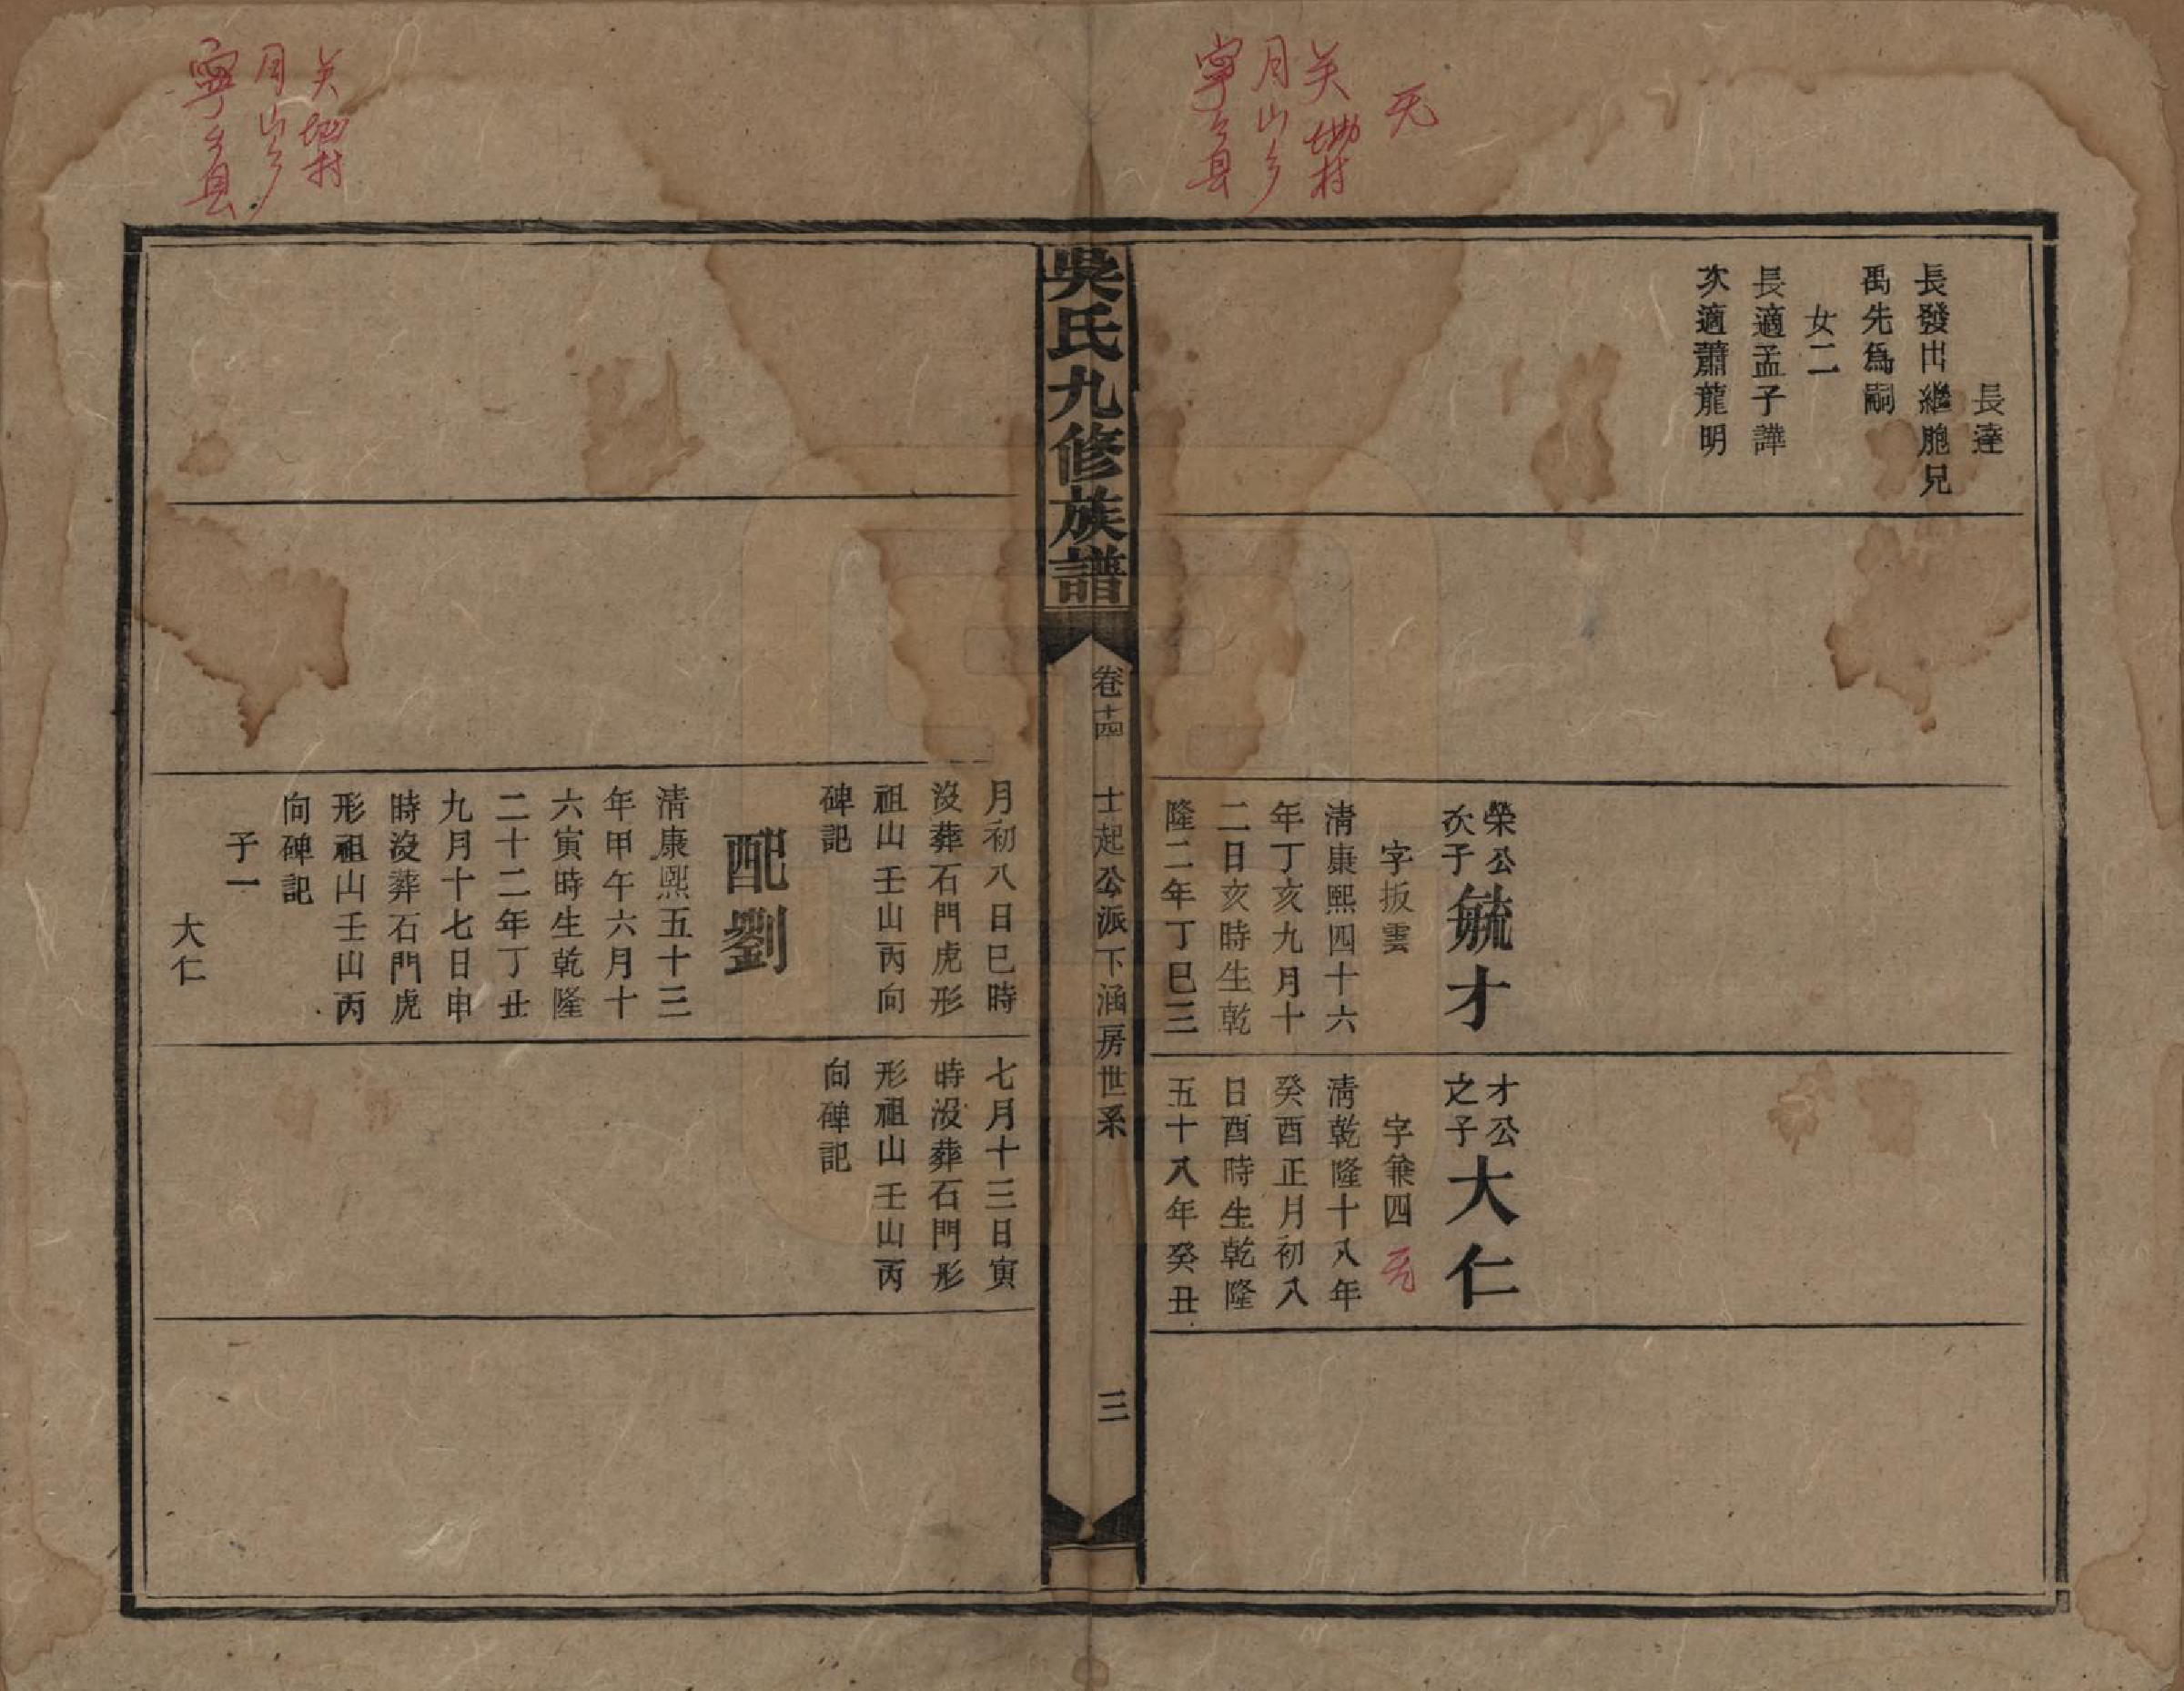 无
关㘭村
月山乡
宁乡县
長達
長發出繼胞兄
禹先爲嗣
女二
長適孟子譁
次適蕭龍明
榮公
次子
毓才
字扳雲
清康熙四十六
年丁亥九月十
二日亥時生乾
隆二年丁巳三
才公
之子
大仁
字兼四
无
清乾隆十八年
癸酉正月初八
日酉時生乾隆
五十八年癸丑
吳氏九修族譜
卷十四
士起公派下涵房世系
三
关㘭村
月山乡
宁乡县
月初八日巳時
沒葬石門虎形
祖山壬山丙向
碑記
配劉
清康熙五十三
年甲午六月十
六寅時生乾隆
二十二年丁丑
九月十七日申
時沒葬石門虎
形祖山壬山丙
向碑記
子一
大仁
七月十三日寅
時沒葬石門形
形祖山壬山丙
向碑記